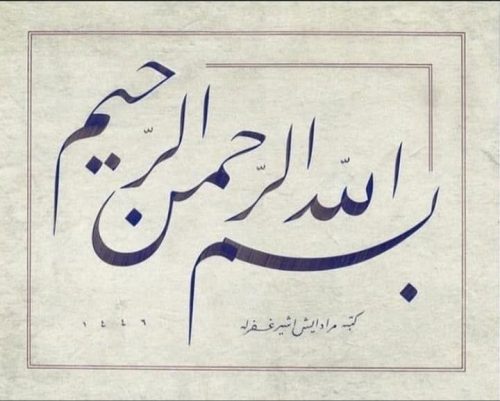 بسم الله الرحمن الرحيم
كتبه مراد ايش اشير غفرله
١٤٤٦